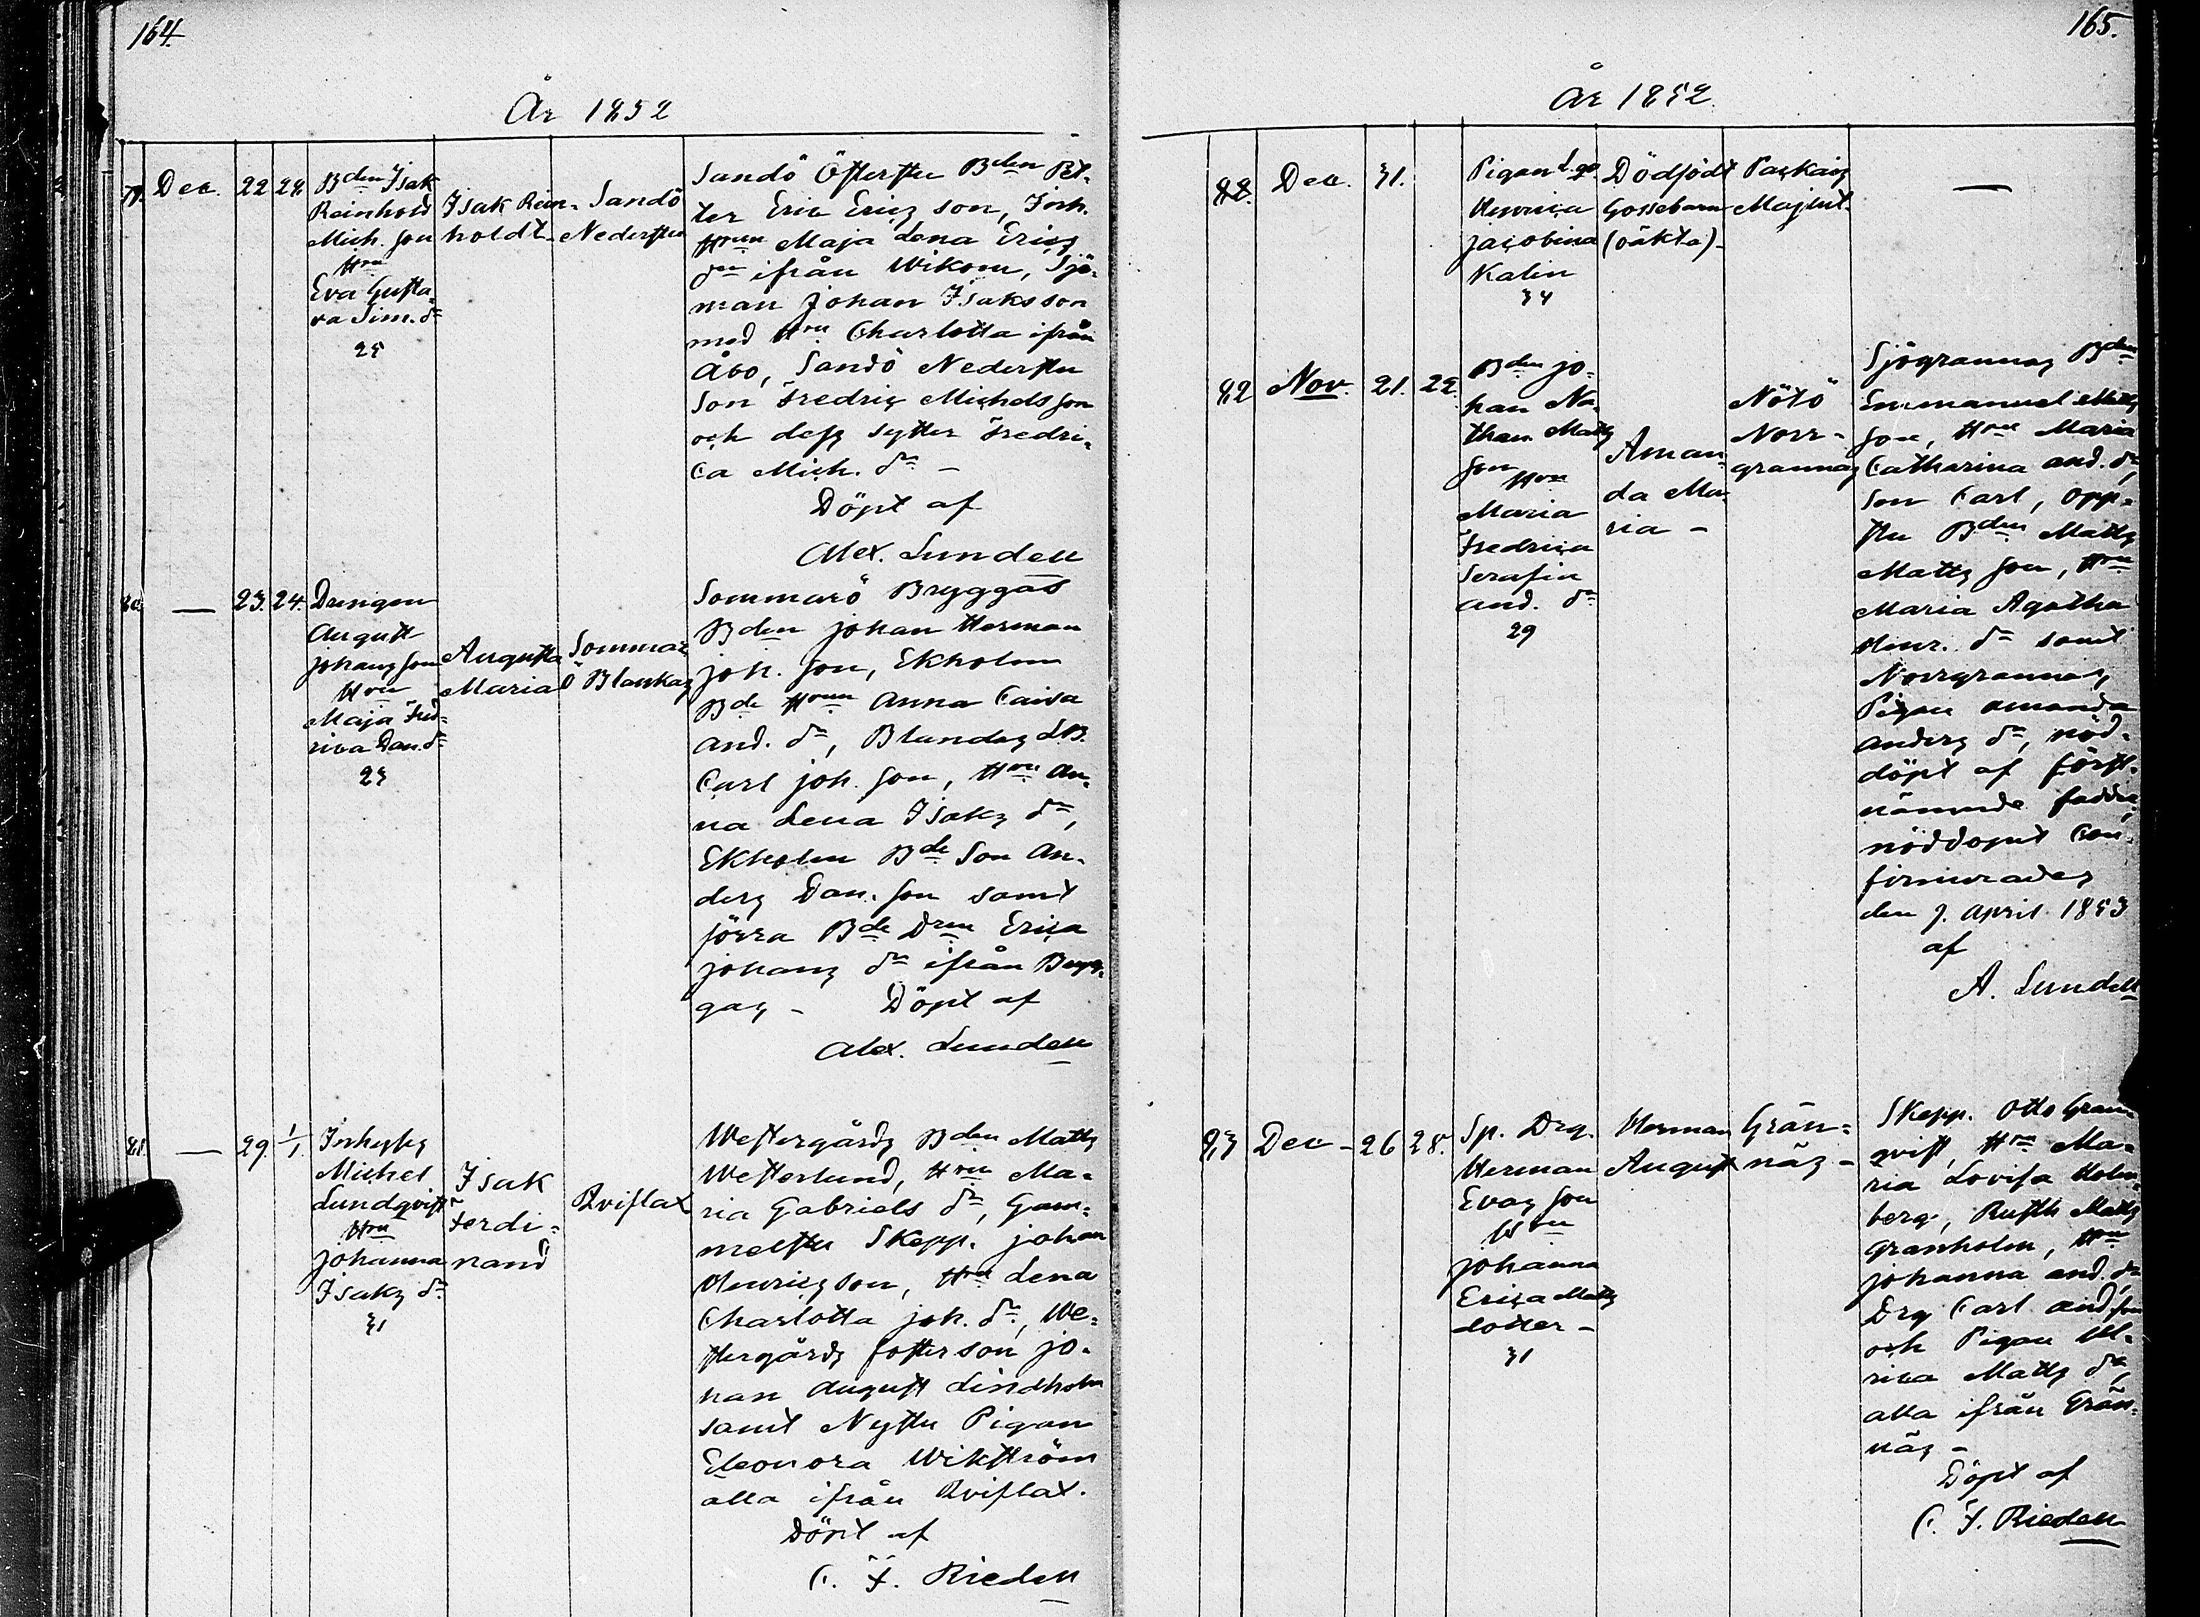 164.
År 1852
79. Dec. 22 28.
Bden Isak
Reinhold
Mich. son
Hru
Eva Gusta-
va Sim. dr
25
Isak Rein-
holdt
Sandö
Nederstu
Sandö Öfterstu Bden Pet-
ter Eric Erics son, Inh.
Hrun Maja Lena Erics
dr ifrån Wikom, Sjö-
man Johan Isaksson
med Hru Charlotta ifrån
Åbo, Sandö Nederstu
Son Fredric Michels son
och dess sytter Fredri-
ca Mich. dr –
Döpt af
Alex. Lundell
80. — 23. 24.
Drengen
August
Johans son
Hru
Maja Fred-
rica Dan. dr
23
Augusta
Maria
Sommar-
ö Blankas
Sommarö Bryggas
Bden Johan Herman
Joh. son, Ekholm
Bde Hrun Anna Caisa
And. dr, Blandas LB.
Carl Joh. son, Hru An-
na Lena Isaks dr,
Ekholm Bde Son An-
ders Dan. son samt
Jörra Bde Dren Erica
Johans dr ifrån Bryg-
gas – Döpt af
Alex. Lundell
81. — 29 1/1
Inhyses
Michel
Lundqvist
Hru
Johanna
Isaks dr
31
Isak
Ferdi-
nand
Qviflax
Westergårds Bden Matts
Westerlund, Hru Ma-
ria Gabriels dr, Gam-
melstu Skepp. Johan
Henrics son, Hru Lena
Charlotta Joh. dr, We-
stergårds fosterson Jo-
han August Lindholm
samt Nystu Pigan
Eleonora Wikström
alla ifrån Qviflax.
Döpt af
C. F. Rieden
165.
År 1852.
88. Dec. 31.
Pigan
Henrica
Jacobina
Kalin
34
Dödfödt
Gossebarn
(oäkta) –
Majlut.
—
82 Nov. 21. 22.
Bden Jo-
han Na-
than Matts
son
Hru
Maria
Fredrica
Serafia
And. dr
29
Aman-
da Ma-
ria –
Nötö
Norr-
grannas
Sjögrannas Bden
Emmanuel Matts
son, Hru Maria
Catharina And. dr,
Son Carl, Opp-
stu Bden Matts
Matts son, Hru
Maria Agatha
Henr. dr samt
Norrgrannas
Pigan Amanda
Anders dr, nöd-
döpt af först-
nämnde fadder,
nöddopet Con-
firmerades
den 7. April 1853
af
A. Lundell
83 Dec – 26 28.
Sp. Drg.
Herman
Evas son
Hru
Johanna
Erica Matts
dotter –
31
Herman
August
Grän-
näs –
Skepp. Otto Gran-
qvist, Hru Ma-
ria Lovisa Holm-
berg, Rusth Matts
Granholm, Hru
Johanna And. dr
Drg Carl And. son
och Pigan Ul-
rica Matts dr,
alla ifrån Grän-
näs –
Döpt af
C. F. Rieden